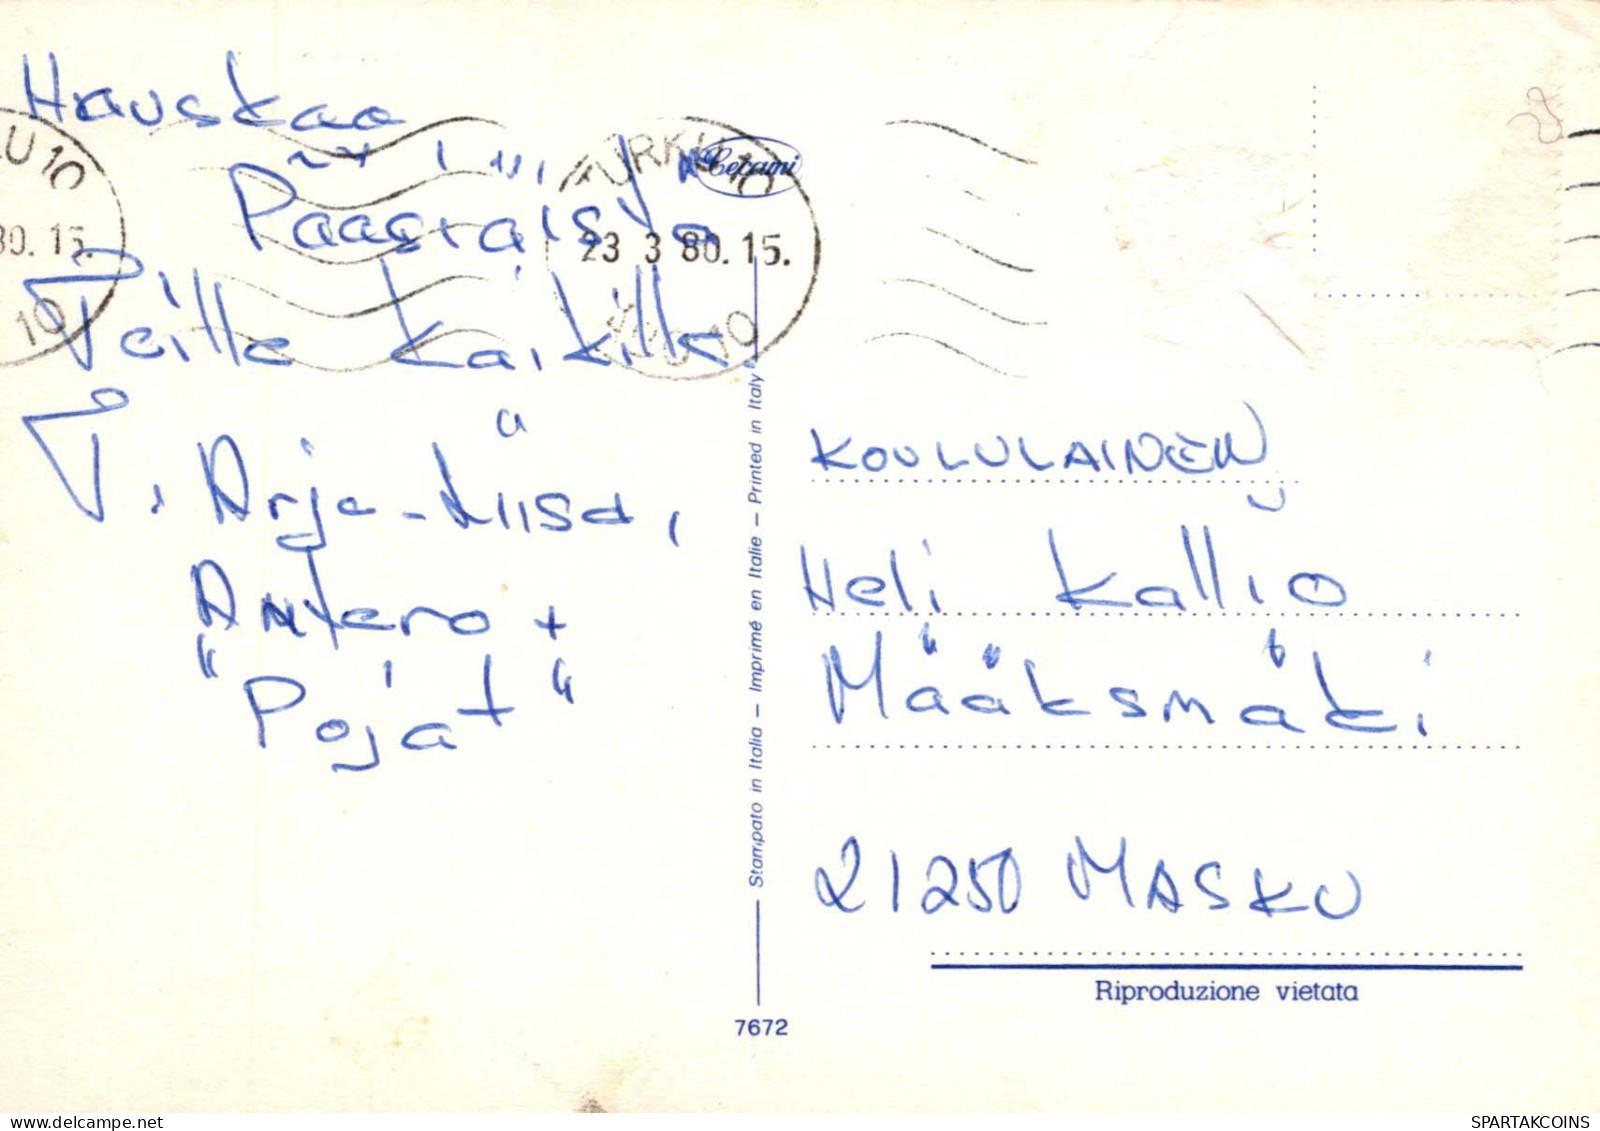 Hauskaa
Pääsiäistä
Teille kaikille!
T. Arja-Liisa,
Antero +
"Pojat"
TURKU 10
23 3 80.15.
ÅBO 10
LU 10
80.15.
10
Cecami
Stampato in Italia – Imprimé en Italie – Printed in Italy
7672
KOULULAINEN
Heli Kallio
Määksmäki
21250 MASKU
Riproduzione vietata
SPARTAKCOINS